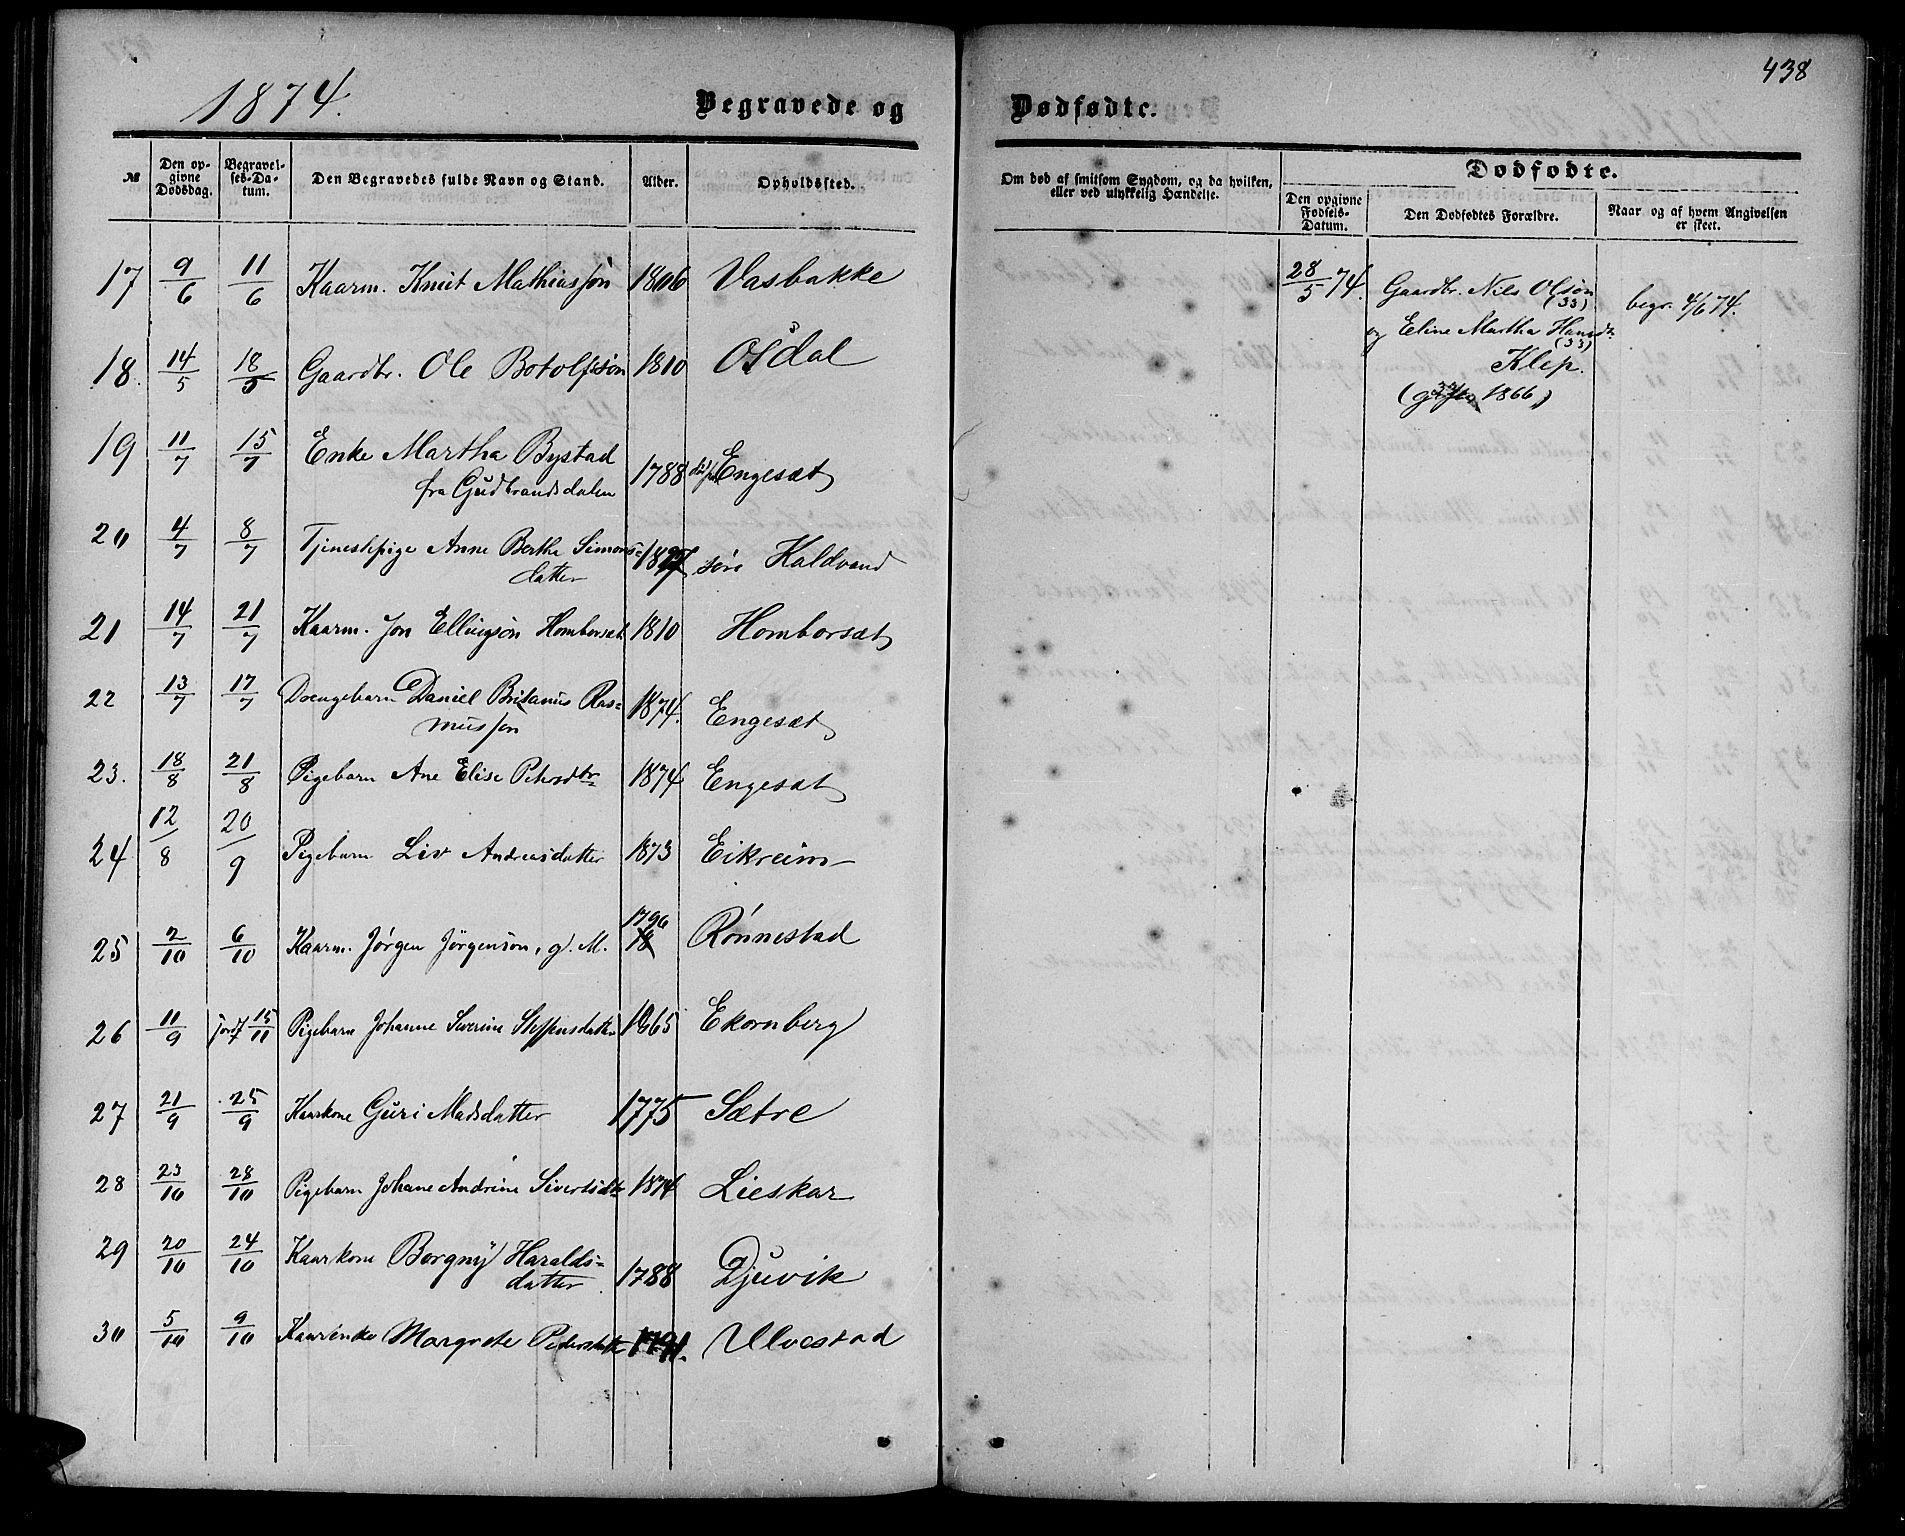 438
1874.
Begravede og Dødfødte.
№ | Den opgivne Dødsdag. | Begravelses-Datum. | Den Begravedes fulde Navn og Stand. | Alder. | Opholdssted. | Om død af smitsom Sygdom, og da hvilken, eller ved ulykkelig Hændelse. | Dødfødte.
Den opgivne Fødsels-Datum. | Den Dødfødtes Forældre. | Naar og af hvem Angivelsen er skeet.
17 9/6 11/6 Kaarm. Knut Mathiasson 1806 Vasbakke
18. 14/5 18/5 Gaardbr. Ole Botolfssøn 1810 Osdal
19 11/7 15/7 Enke Martha Bystad
fra Gudbrandsdalen 1788 Engesæt
20 4/7 8/7 Tjenestepige Anne Berthe Simons-
datter søre Kaldvand
21 14/7 21/7 Kaarm. Jon Ellingsøn Homborsæt 1810 Homborsæt
22 13/7 17/7 Drengebarn Daniel Britanus Ras-
musson 1874. Engesæt
23. 18/8 21/8 Pigebarn Ane Elise Petersdtr 1874 Engesæt
24 12/8 20/9 Pigebarn Liv Andreasdatter 1873 Eikreim
25 2/10 6/10 Kaarm. Jørgen Jörgensøn, g. M. 1796 Rønnestad
26 11/9 jordf 15/11 Pigebarn Johanne Severine Steffensdatter 1865 Ekornberg
27 21/9 25/9 Kaarkone Guri Madsdatter 1775 Sætre
28 23/10 28/10 Pigebarn Johane Andrine Sivertsdtr 1874 Lieskar
29 20/10 24/10 Kaarkone Borgny Haralds-
datter 1788 Djuvik
30 5/10 9/10 Kaarenke Margrete Pedersdatter Ulvestad
28/5 74. Gaardbr. Nils Olsøn
(33)
og Eline Martha Hansdt.
(33)
Klep.
(gift 1866)
begr. 4/6 74.